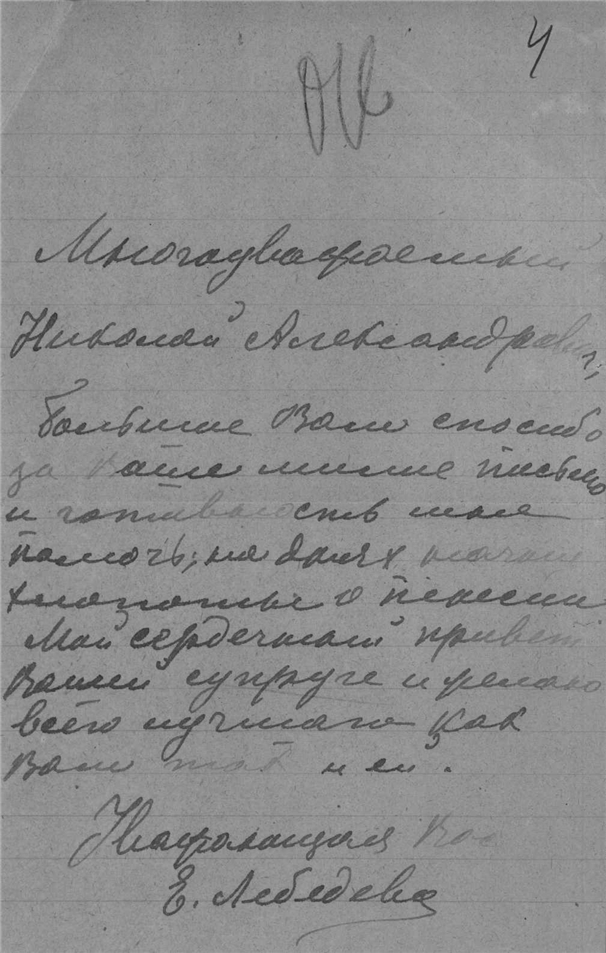 4
Многоуважаемый
Николай Александрович,
Большое Вам спасибо
за Ваше милое письмо
и готовность мне
помочь; на днях начну
хлопоты о пенсии
Мой сердечный привет
Вашей супруге и желаю
всего лучшаго как
Вам так и ей.
Уважающая Вас
Е. Лебедева